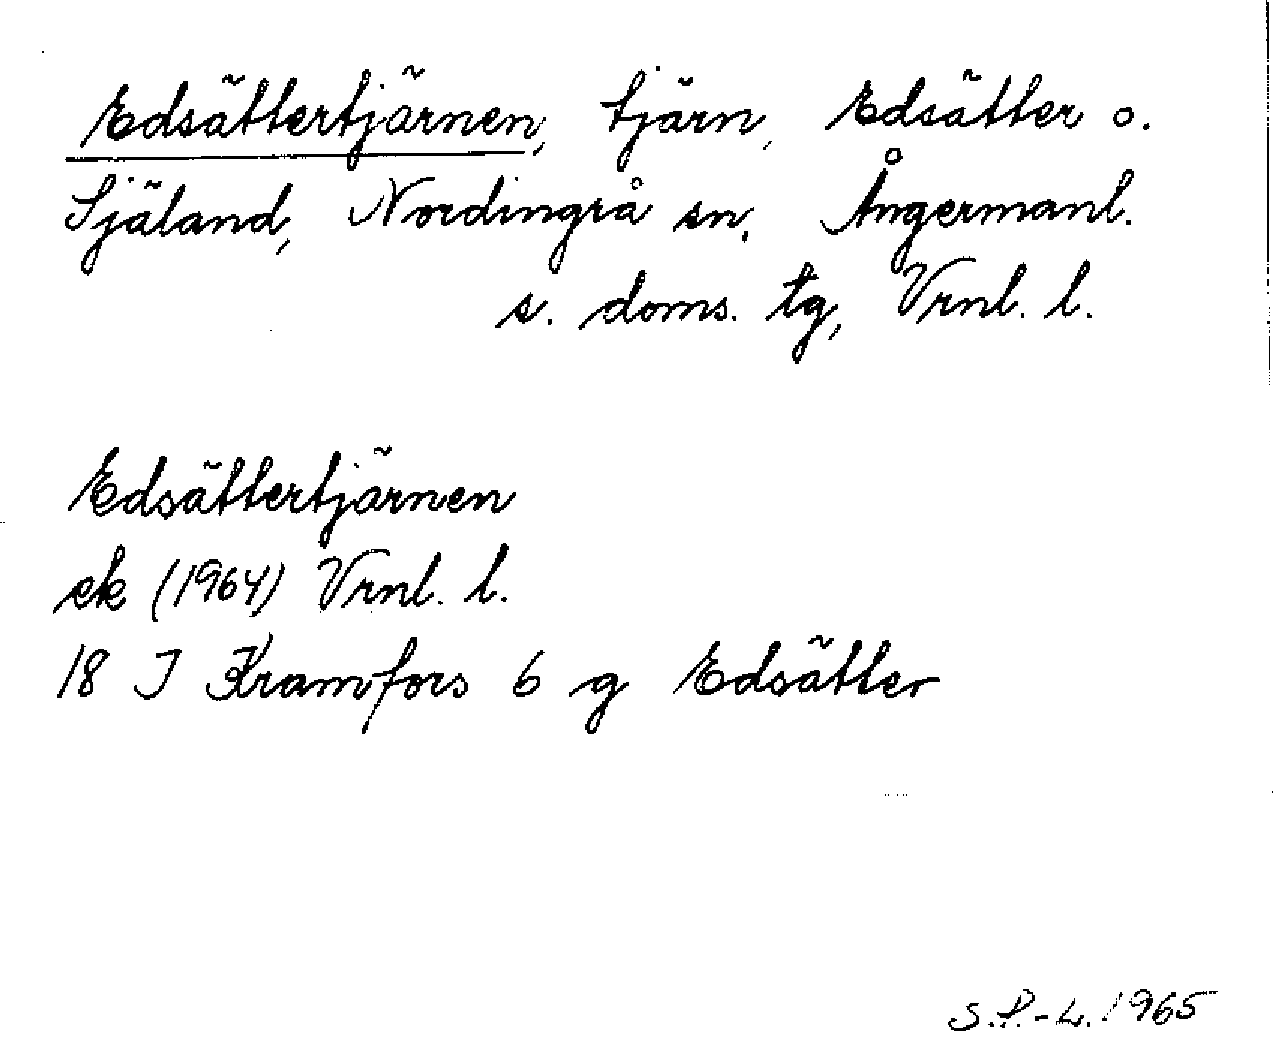 Edsättertjärnen, tjärn, Edsätter o.
Själand, Nordingrå sn. Ångermanl.
s. doms. tg, Vrnl. l.
Edsättertjärnen
ek (1964) Vrnl. l.
18 I Kramfors 6 g Edsätter
S.P.-L. 1965